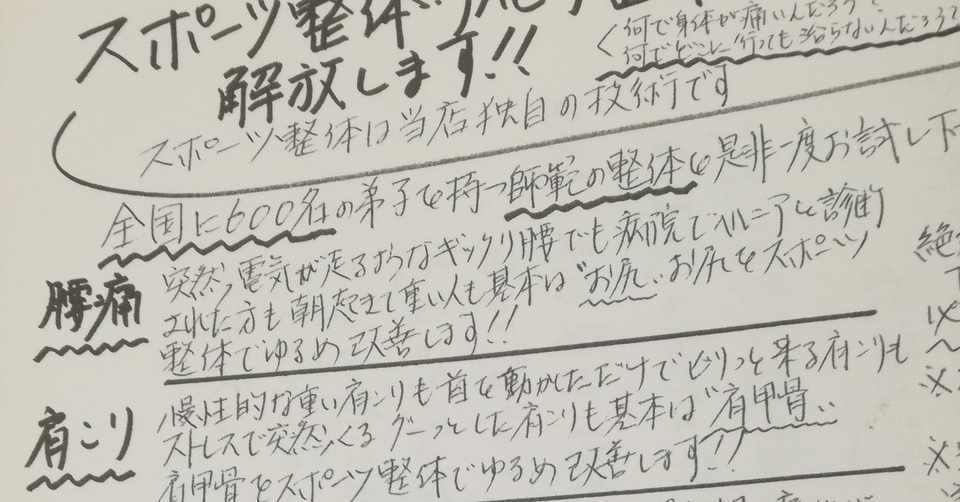 スポーツ整体
解放します!!
何で身体が痛いんだろう?
何でどこに行っても治らないんだろう?
スポーツ整体は当店独自の技術です
全国に600名の弟子を持つ師範の整体を是非一度お試し下
腰痛
突然、電気が走るようなギックリ腰でも病院でヘルニアと診断
された方も朝起きて重い人も基本は"お尻"お尻をスポーツ
整体でゆるめ改善します!!
肩こり
慢性的な重い肩こりも首を動かしただけでピリっと来る肩こりも
ストレスで突然くるグーっとした肩こりも基本は"肩甲骨"
肩甲骨をスポーツ整体でゆるめ改善します!!
絶
※
※